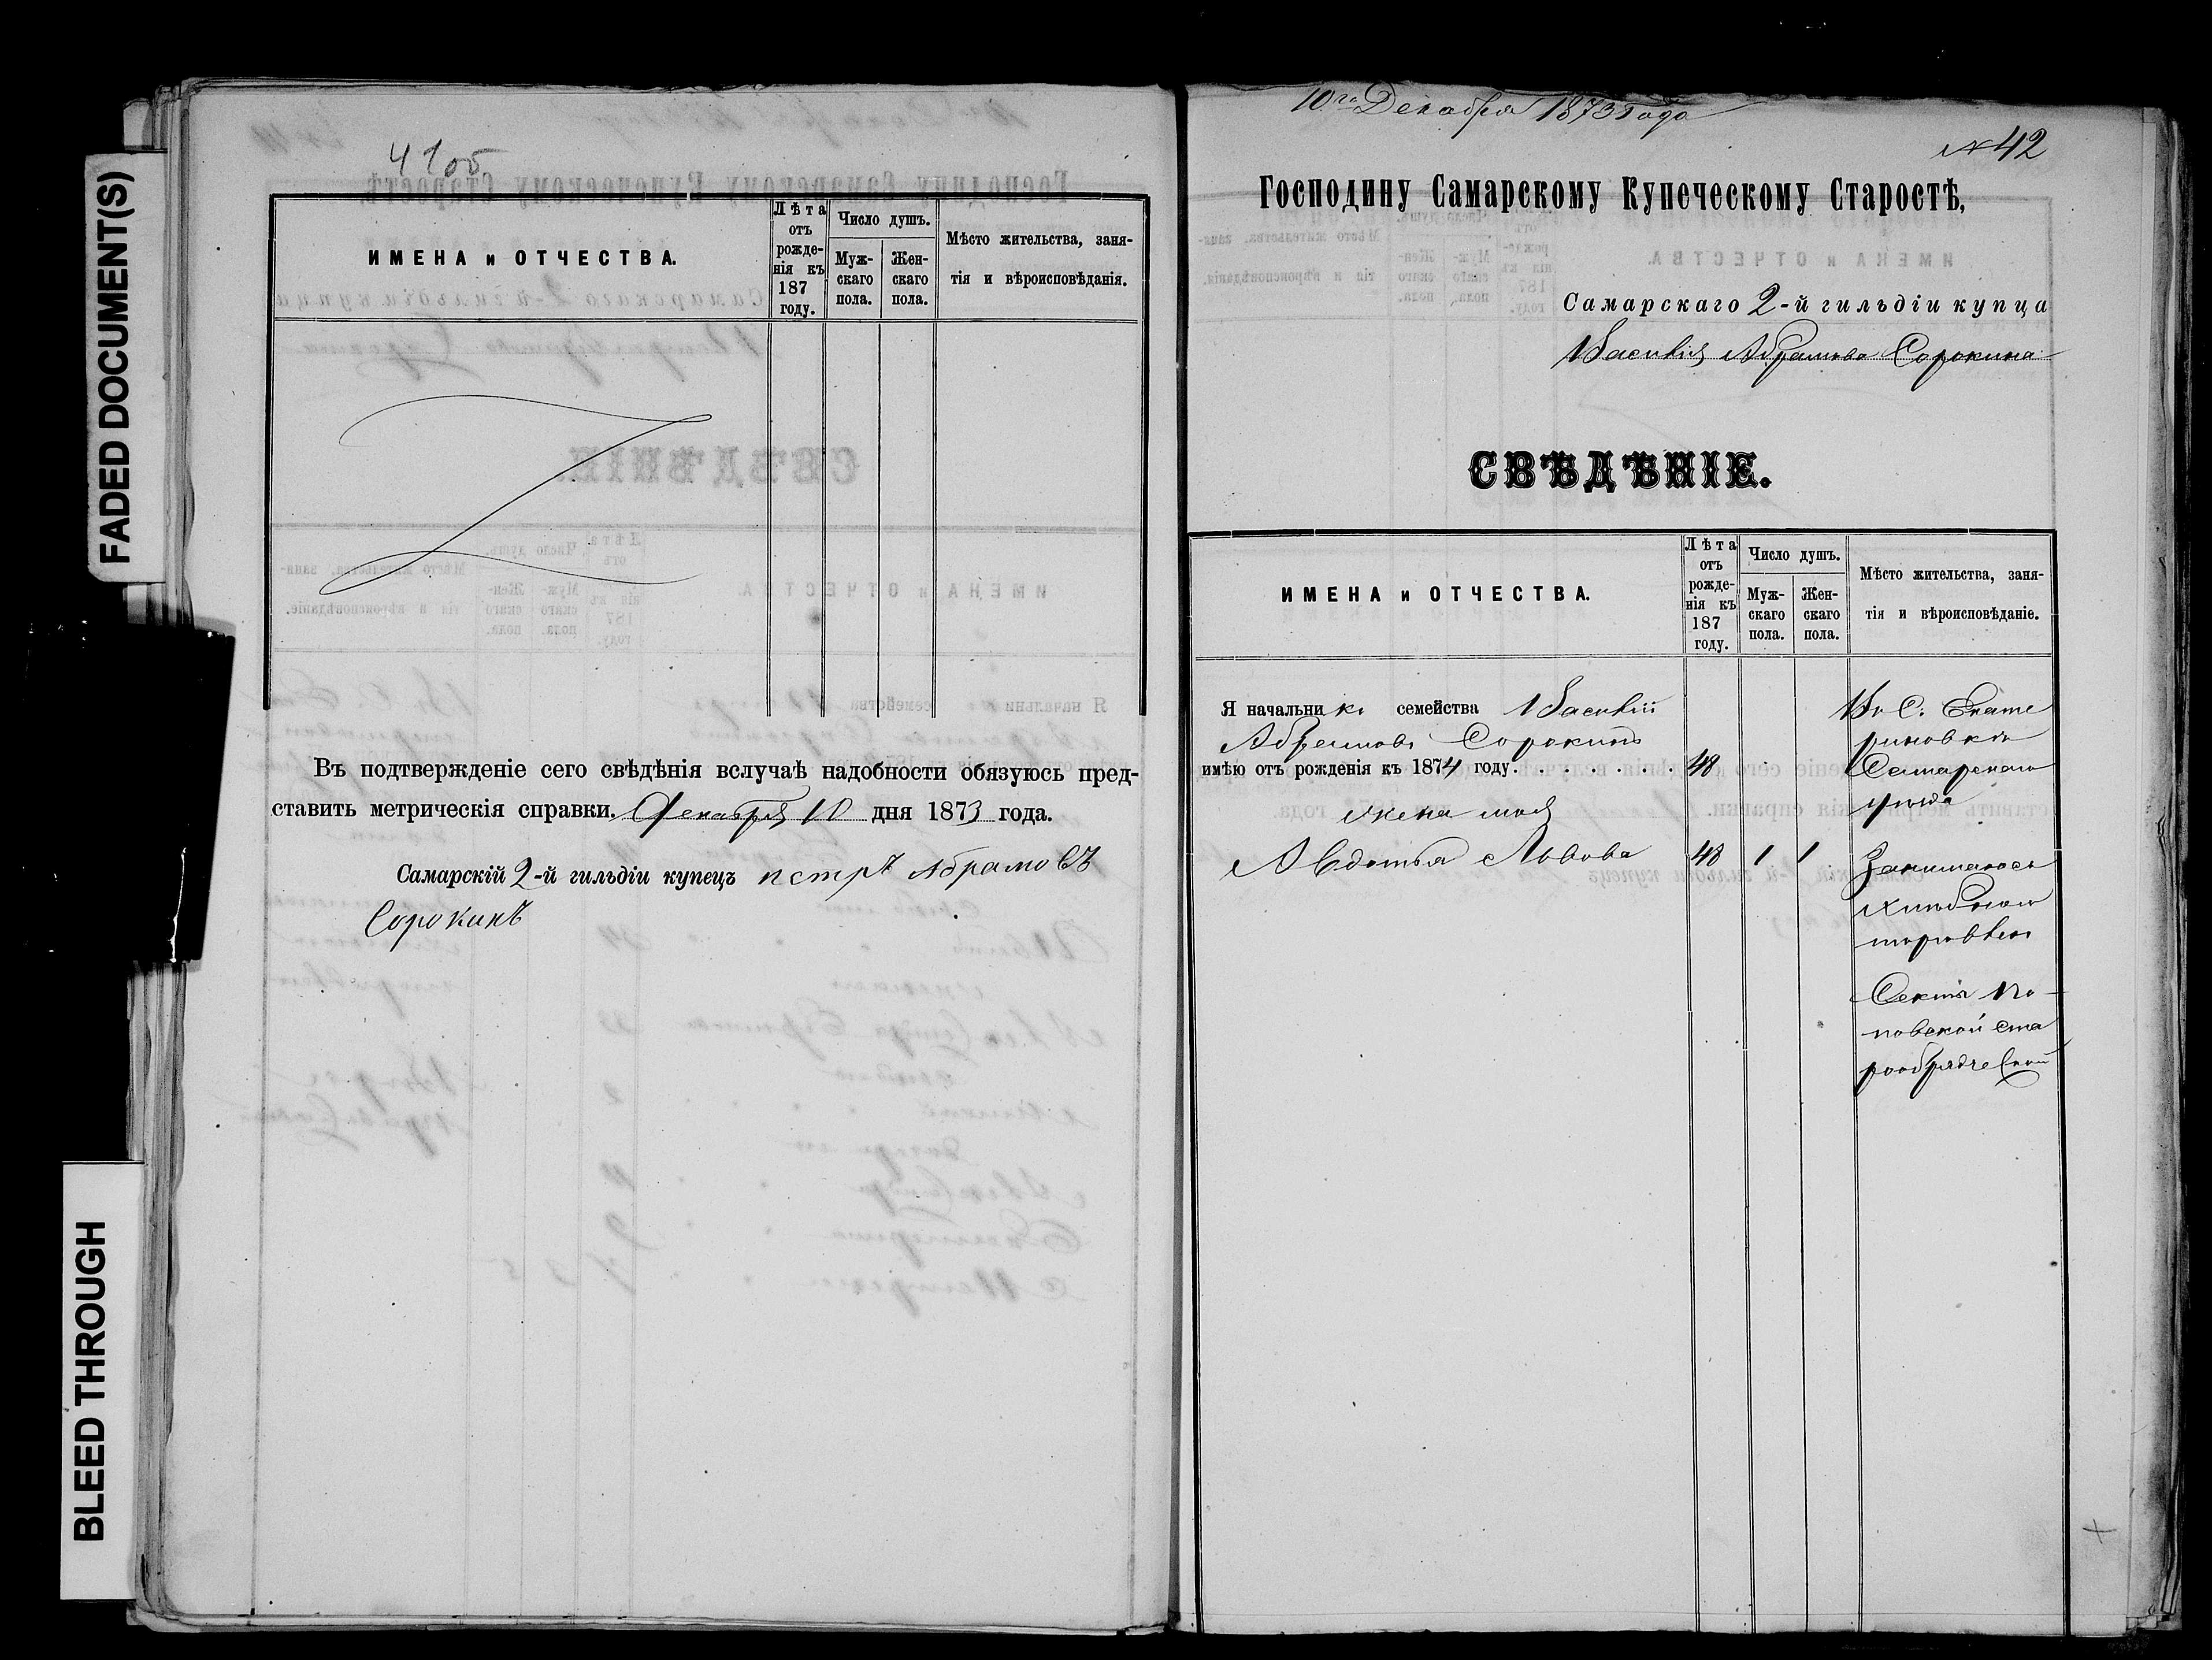 FADED DOCUMENT(S)
BLEED THROUGH
41об
ИМЕНА и ОТЧЕСТВА.
Лѣта отъ рожденія къ 187 году.
Число душъ.
Мужскаго пола.
Женскаго пола.
Мѣсто жительства, заня-
тія и вѣроисповѣданія.
Въ подтвержденіе сего свѣдѣнія вслучаѣ надобности обязуюсь пред-
ставить метрическія справки. Декабря 10 дня 1873 года.
Самарскій 2-й гильдіи купецъ петръ Абрамовъ
Сорокинъ
10го Декабря 1873 года
№ 42
Господину Самарскому Купеческому Старостѣ,
Самарскаго 2-й гильдіи купца
Василія Абрамова Сорокина
СВѢДѢНІЕ.
ИМЕНА и ОТЧЕСТВА.
Лѣта отъ рожденія къ 187 году.
Число душъ.
Мужскаго пола.
Женскаго пола.
Мѣсто жительства, заня-
тія и вѣроисповѣданіе.
Я начальникъ семейства Василій
Абрамовъ Сорокинъ
имѣю отъ рожденія къ 1874 году. . . . . . . 48
жена моя
Авдотья Львова 48 1 1
Въ С. Екате
риновкѣ
Самарскаго
уѣзда
Занимаюсь
хлѣбною
торговлею
Секты по-
повской ста
рообрядческой